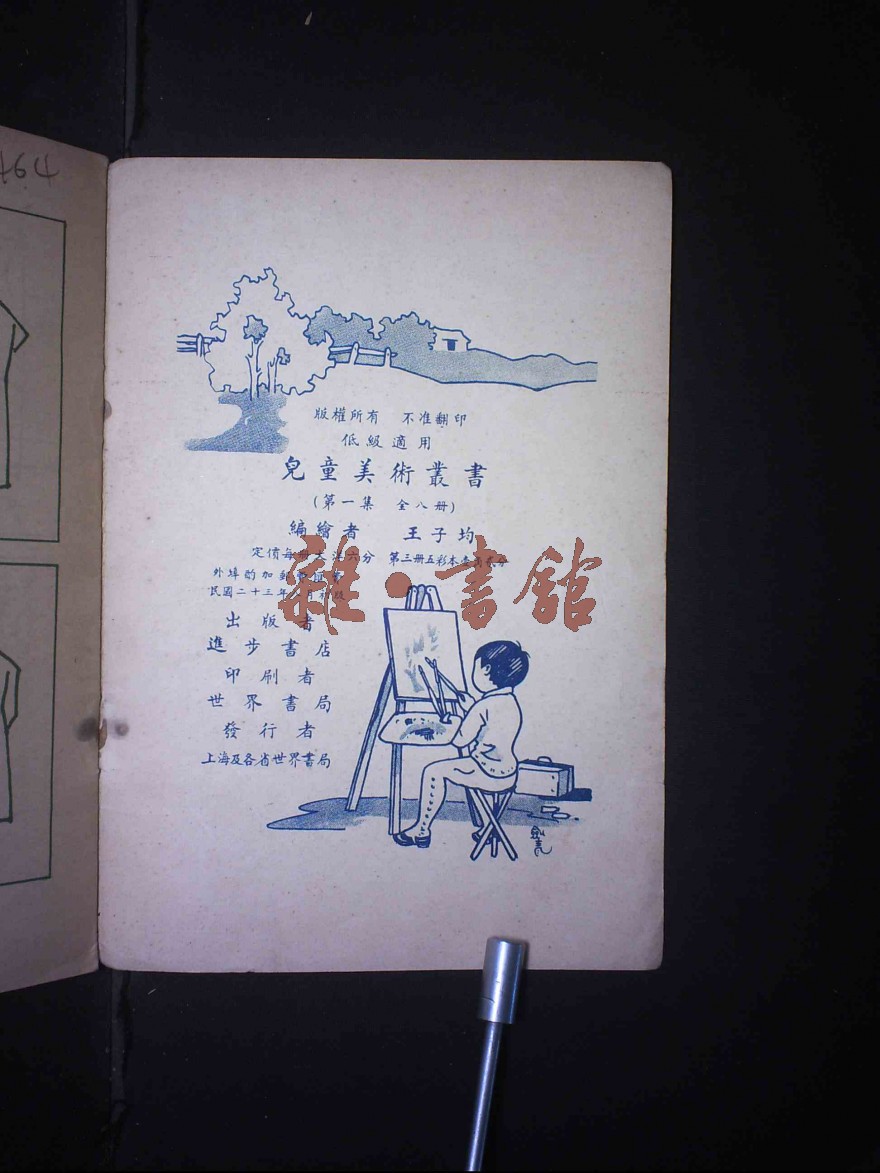 版權所有 不准翻印
低級適用
兒童美術叢書
(第一集 全八册)
編繪者 王子均
定價每册大洋六分 第三册五彩本
外埠酌加郵
民國二十三年 月初版
出版者
進步書店
印刷者
世界書局
發行者
上海及各省世界書局
雜·書館